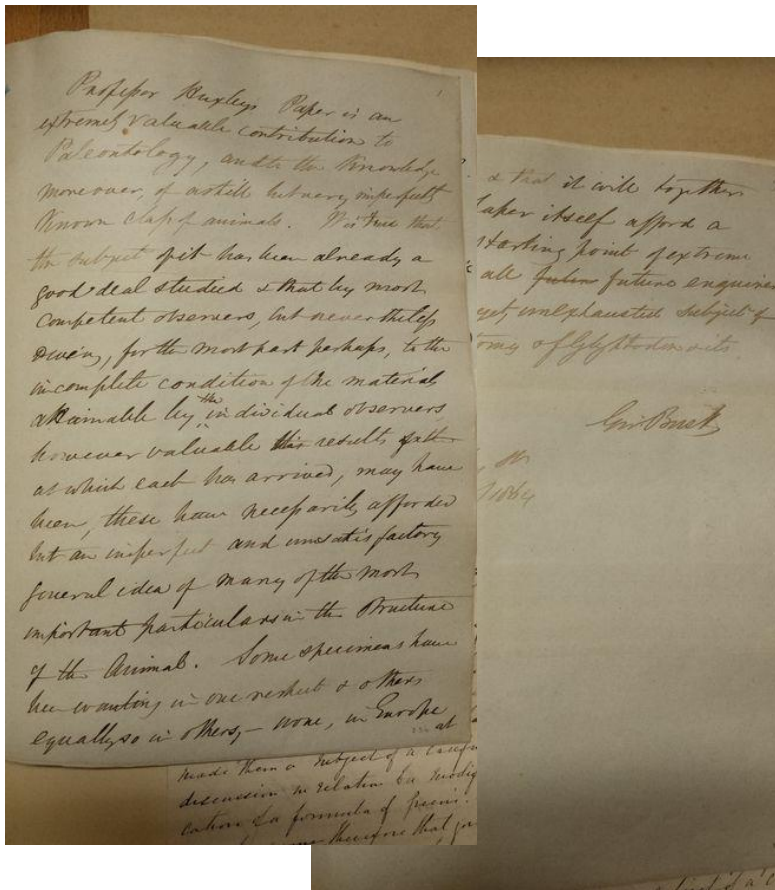 1
Professor Huxley's Paper is an
extremely valuable contribution to
Palæontology, and to the Knowledge
moreover, of a still but very imperfectly
Known class of animals. It is true that
the subject of it has been already a
good deal studied & that by most
competent observers, but nevertheless
owing, for the most part perhaps, to the
incomplete condition of the material
attainable by the individual observers
however valuable the results
at which each has arrived, may have
been, these have necessarily afforded
but an imperfect and unsatisfactory
general idea of many of the most
important particulars in the structure
of the Animal. Some specimens have
been wanting in one respect & others
equally so in others, — none, in Europe
at
made them a subject of a
discussion in relation to a modifi
cation of a formula of
therefore that
& that it will together
aper itself afford a
starting point of extreme
all future enquiries
yet unexhausted subject of
tomy of Glyptodon & its
Geo Busk
1864